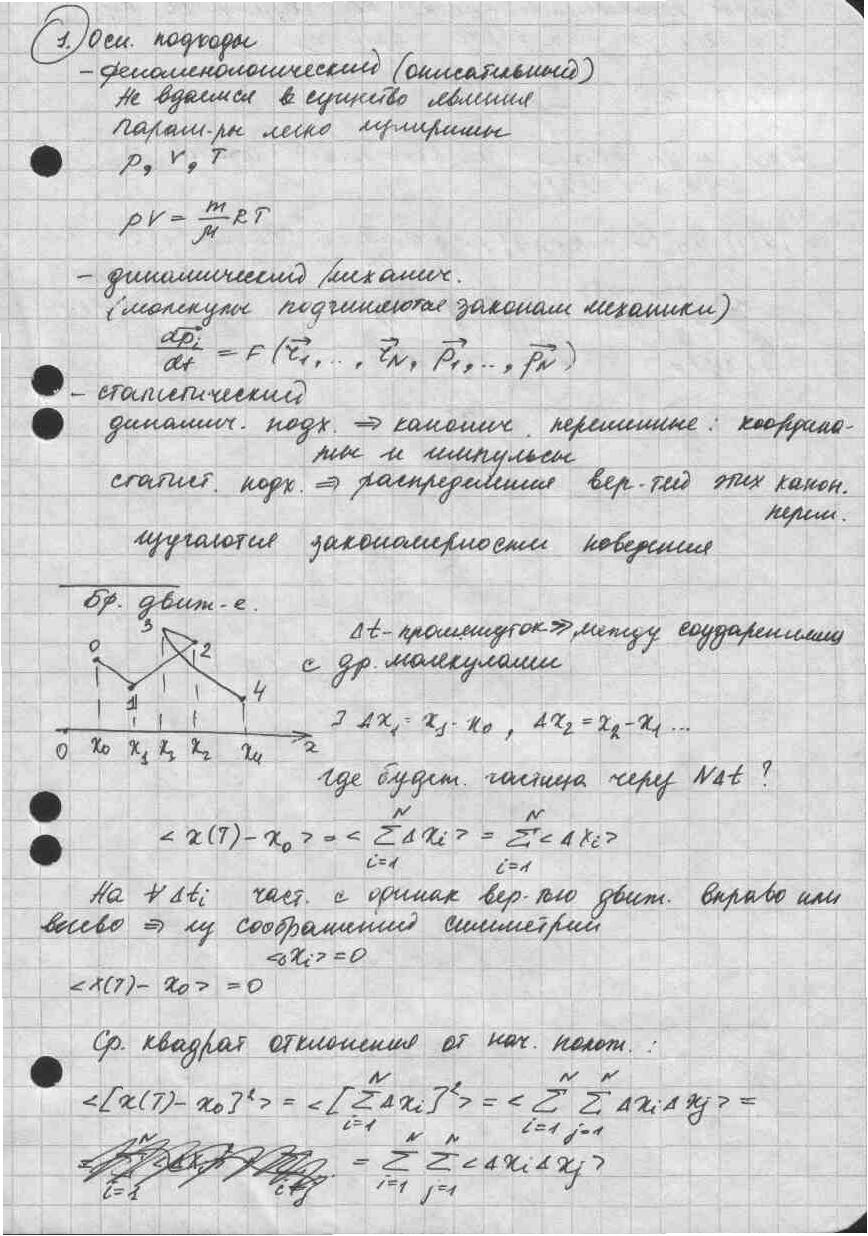 1. Осн. подходы
– феноменологический (описательный)
Не вдаемся в существо явления
Парам-ры легко измеримы
p, V, T
pV = m/μ RT
– динамический /механич.
(молекулы подчиняются законам механики)
dp⃗ᵢ/dt = F (r⃗₁, .., r⃗N, p⃗₁, .., p⃗N)
– статистический
динамич. подх. ⇒ канонич. переменные: координа-
ты и импульсы
статист. подх. ⇒ распределения вер-тей этих канон.
перем.
изучаются закономерности поведения
Бр. движ-е.
Δt – промежуток между соударениями
с др. молекулами
0 1 2 3 4
0 x₀ x₁ x₃ x₂ x₄ x
∃ Δx₁ = x₁ - x₀, Δx₂ = x₂ - x₁ ...
где будет. частица через NΔt ?
<x(T) - x₀> = <∑ᵢ₌₁ᴺ Δxᵢ> = ∑ᵢ₌₁ᴺ <Δxᵢ>
На ∀ Δtᵢ част. с одинак вер-тью движ. вправо или
влево ⇒ из соображений симметрии
<Δxᵢ> = 0
<x(T) - x₀> = 0
Ср. квадрат отклонения от нач. полож. :
<[x(T) - x₀]²> = <[∑ᵢ₌₁ᴺ Δxᵢ]²> = <∑ᵢ₌₁ᴺ ∑ⱼ₌₁ᴺ Δxᵢ Δxⱼ> =
= ∑ᵢ₌₁ᴺ ∑ⱼ₌₁ᴺ <Δxᵢ Δxⱼ>